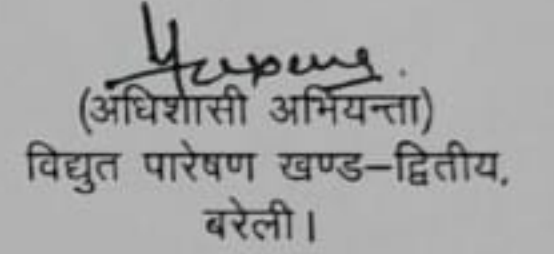 (अधिशासी अभियन्ता)
विद्युत पारेषण खण्ड–द्वितीय,
बरेली।